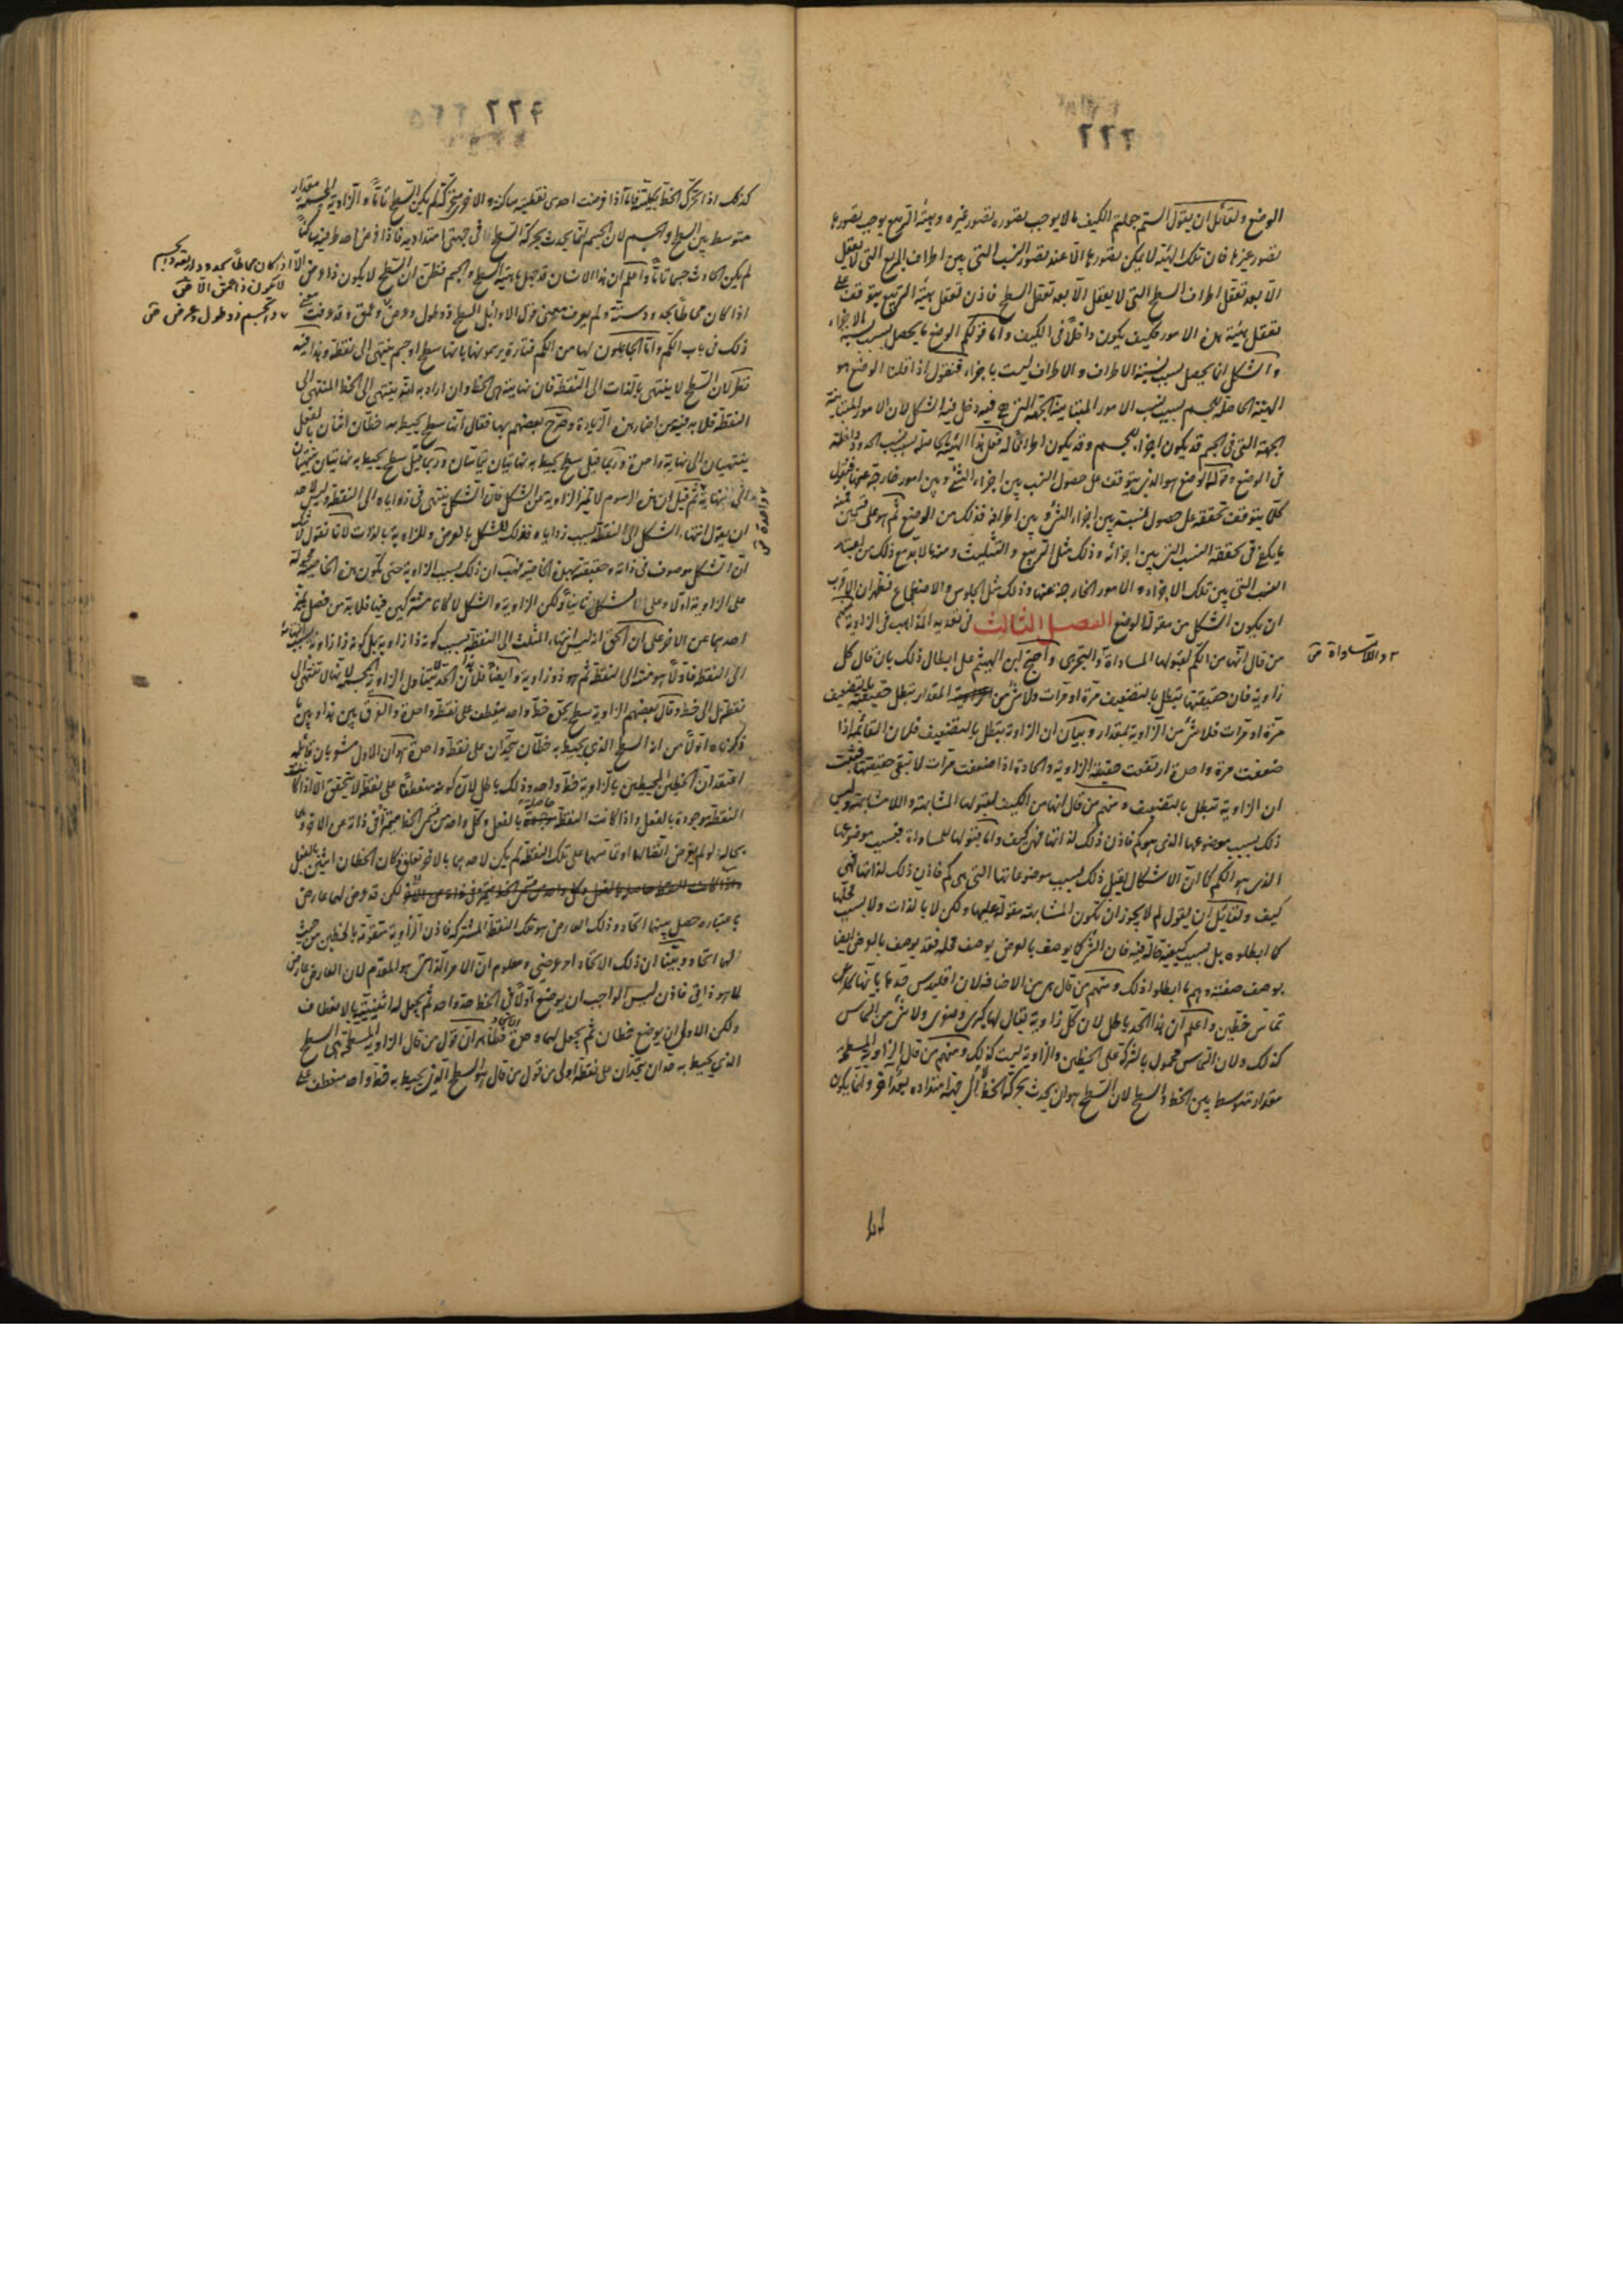 ٢٢٢
الوضع ولقائل ان يقول الستم جعلتم الكيف ما لا يوجب تصوره تصور غيره وهيئة التربيع يوجب تصورها
تصور غيرها فان تلك الهيئة لا يمكن تصورها الا عند تصور النسب التي بين اطراف المربع التي لا تعقل
الا بعد تعقل اطراف السطح التي لا يعقل الا بعد تعقل السطح فاذن تعقل هيئة التربيع يتوقف على
تعقل هيئة هذه الامور فكيف يكون داخلا في الكيف واما قولكم الوضع ما يحصل بسبب نسبة الاجزاء
والشكل انما يحصل بسبب نسبة الاطراف والاطراف ليست باجزاء فنقول اذا قلنا الوضع هو
الهيئة الحاصلة للجسم بسبب نسب الامور المتباينة الجهة التي فيه دخل فيه الشكل لان الامور المتباينة
الجهة التي في الجسم قد يكون اجزاء للجسم وقد يكون اطرافا له فعلى هذا الهيئة الحاصلة بسبب نسب الحدود داخلة
في الوضع وقولنا الوضع هو الذي يتوقف على حصول النسب بين اجزاء الشئ وبين امور خارجة عنها فنقول
كلما يتوقف تحققه على حصول نسبة بين اجزاء الشئ وبين اطرافه فذلك من الوضع ثم هو على قسمين فمنه
ما يكفي في تحققه النسب التي بين اجزائه وذلك مثل التربيع والتثليث ومنه ما لا بد مع ذلك من اعتبار
النسب التي بين تلك الاجزاء والامور الخارجة عنها وذلك مثل الجلوس والاضطجاع فظهر ان الاقرب
ان يكون الشكل من مقولة الوضع الفصل الثالث في تعديد المذاهب في الزاوية منهم
من قال انها من الكم لقبولها المساواة والتجزى واحتج ابن الهيثم على ابطال ذلك بان قال كل
والامساواة
زاوية فان حقيقتها يبطل بالتضعيف مرة او مرات ولا شئ من المقدار تبطل حقيقته بالتضعيف
مرة او مرات فلا شئ من الزاوية بمقدار وبيان ان الزاوية تبطل بالتضعيف فلان القائمة اذا
ضعفت مرة واحدة ارتفعت حقيقة الزاوية والحادة اذا ضعفت مرات لا تبقى حقيقتها فثبت
ان الزاوية تبطل بالتضعيف ومنهم من قال انها من الكيف لقبولها المشابهة واللا مشابهة وليس
ذلك بسبب موضوعها الذي هو كم فاذن ذلك لذاتها فهي كيف واما قبولها للمساواة فبسبب موضوعها
الذي هو الكم كما ان الاشكال يقبل ذلك بسبب موضوعاتها التي هي كم فاذن ذلك لذاتها فهي
كيف ولقائل ان يقول لم لا يجوز ان تكون المشابهة مقولة عليها ولكن لا بالذات ولا بسبب محلها
كما ابطلوه بل بسبب كيفية حالة فيه فان الشئ كما يوصف بالعرض بوصف محله فقد يوصف بالعرض ايضا
بوصف صفته وهم ما ابطلوا ذلك ومنهم من قال هي من الاضافة لان اقليدس حدها بانها
تماس خطين واعلم ان هذا الحد باطل لان كل زاوية يقال لها كبرى وصغرى ولا شئ من التماس
كذلك ولان التماس محمول بالشركة على الخطين والزاوية ليست كذلك ومنهم من قال الزاوية المسطحة
مقدار متوسط بين الخط والسطح لان السطح هو ان يحدث بحركة الخط الى جهة امتداده بعدا اخر وانما يكون
٢٢٤
كذلك اذا تحرك الخط بكليته فاما اذا فرضت احدى نقطتيه ساكنة والاخرى متحركة لم يكن السطح تاما والزاوية الجسمة مقدار
متوسط بين السطح والجسم لان الجسم انما يحدث بحركة السطح في جهتي امتداديه فاذا فرض احد طرفيه ساكنا
لم يكن الحادث جسما تاما واعلم ان هذا الانسان قد جهل ماهية السطح والجسم فظن ان السطح لا يكون ذا عرض الا
اذا كان محاطا بحدود اربعة والجسم
لا يكون ذا عمق الا
والجسم ذو طول وعرض
اذا كان محاطا بحدود ستة ولم يعرف معنى قول الاوائل السطح ذو طول وعرض وعمق وقد عرفت
ذلك في باب الكم واما الجاعلون لها من الكم فتارة يرسمونها بانها سطح او جسم منتهى الى نقطة وهذا فيه
نظر لان السطح لا ينتهى بالذات الى النقطة فان نهايته هي الخط وان اراد به انه ينتهى الى الخط المنتهى الى
النقطة فلا بد فيه من اضمار هذه الزيادة وصرح بعضهم بها فقال انها سطح يحيط به خطان اثنان بالفعل
ينتهيان الى نهاية واحدة وربما قيل سطح يحيط به نهايتان تماستان وربما قيل سطح يحيط به نهايتان ينتهيان
الى نهاية ثم قيل ان هذه الرسوم لا تميز الزاوية عن الشكل فان الشكل ينتهى في زواياه الى النقطة وليس لاحد
واحدة
ان يقول انتهاء الشكل الى النقطة بسبب زواياه فذلك للشكل بالعرض وللزاوية بالذات لانا نقول لا شك
ان الشكل موصوف في ذاته وحقيقته بهذه الخاصية فهب ان ذلك بسبب الزاوية حتى تكون هذه الخاصية محمولة
على الزاوية اولا وعلى الشكل ثانيا ولكن الزاوية والشكل لما كانا مشتركين فيها فلا بد من فصل يميز
احدهما عن الاخر على ان الحق انه ليس انتهاء المثلث الى النقطة بسبب كونه ذا زاوية بل كونه ذا زاوية بسبب انتهائه
الى النقطة فاولا هو منته الى النقطة ثم هو ذو زاوية وايضا فلان هذا الحد لا يتناول الزاوية المجسمة لانها لا تنتهى الى
نقطة بل الى خط وقال بعضهم الزاوية سطح يحق خط واحد ينعطف على نقطة واحدة والفرق بين هذا وبين ما
ذكرناه اولا من انه السطح الذي يحيط به خطان يتحدان على نقطة واحدة هو ان الاول مشعر بان قائله
اعتقد ان الخطين المحيطين بالزاوية خط واحد وذلك باطل لان كونه منعطفا على نقطة لا يتحقق الا اذا كانت
النقطة موجودة بالفعل واذا كانت النقطة حاصلة بالفعل وكل واحد من قسمي الخط متميزا في ذاته عن الاخر
بحاله لو لم يفرض اتصالها او تماسهما على تلك النقطة لم يكن لاحدهما بالاخر تعلق فكان الخطان اثنين بالفعل
لكن قد عرض لهما عارض
باعتباره حصل بينهما اتحاد وذلك العارض هو تلك النقطة المشتركة فاذن الزاوية متقومة بالخطين من حيث
لهما اتحاد وبينا ان ذلك الاتحاد امر عرضي ومعلوم ان الامر الذاتي هو المقدم لان العارض عارض
لما هو ذاتي فاذن ليس الواجب ان يوضع اولا في الخط حد واحد ثم يجعل له اثنينية بالانعطاف
ولكن الاولى ان يوضع خطان ثم يجعل لهما وحدة فظاهر ان قول من قال الزاوية المسطحة هي السطح
الذي يحيط به حدان يتحدان على نقطة اولى من قول من قال هو السطح الذي يحيط به خط واحد منعطف على